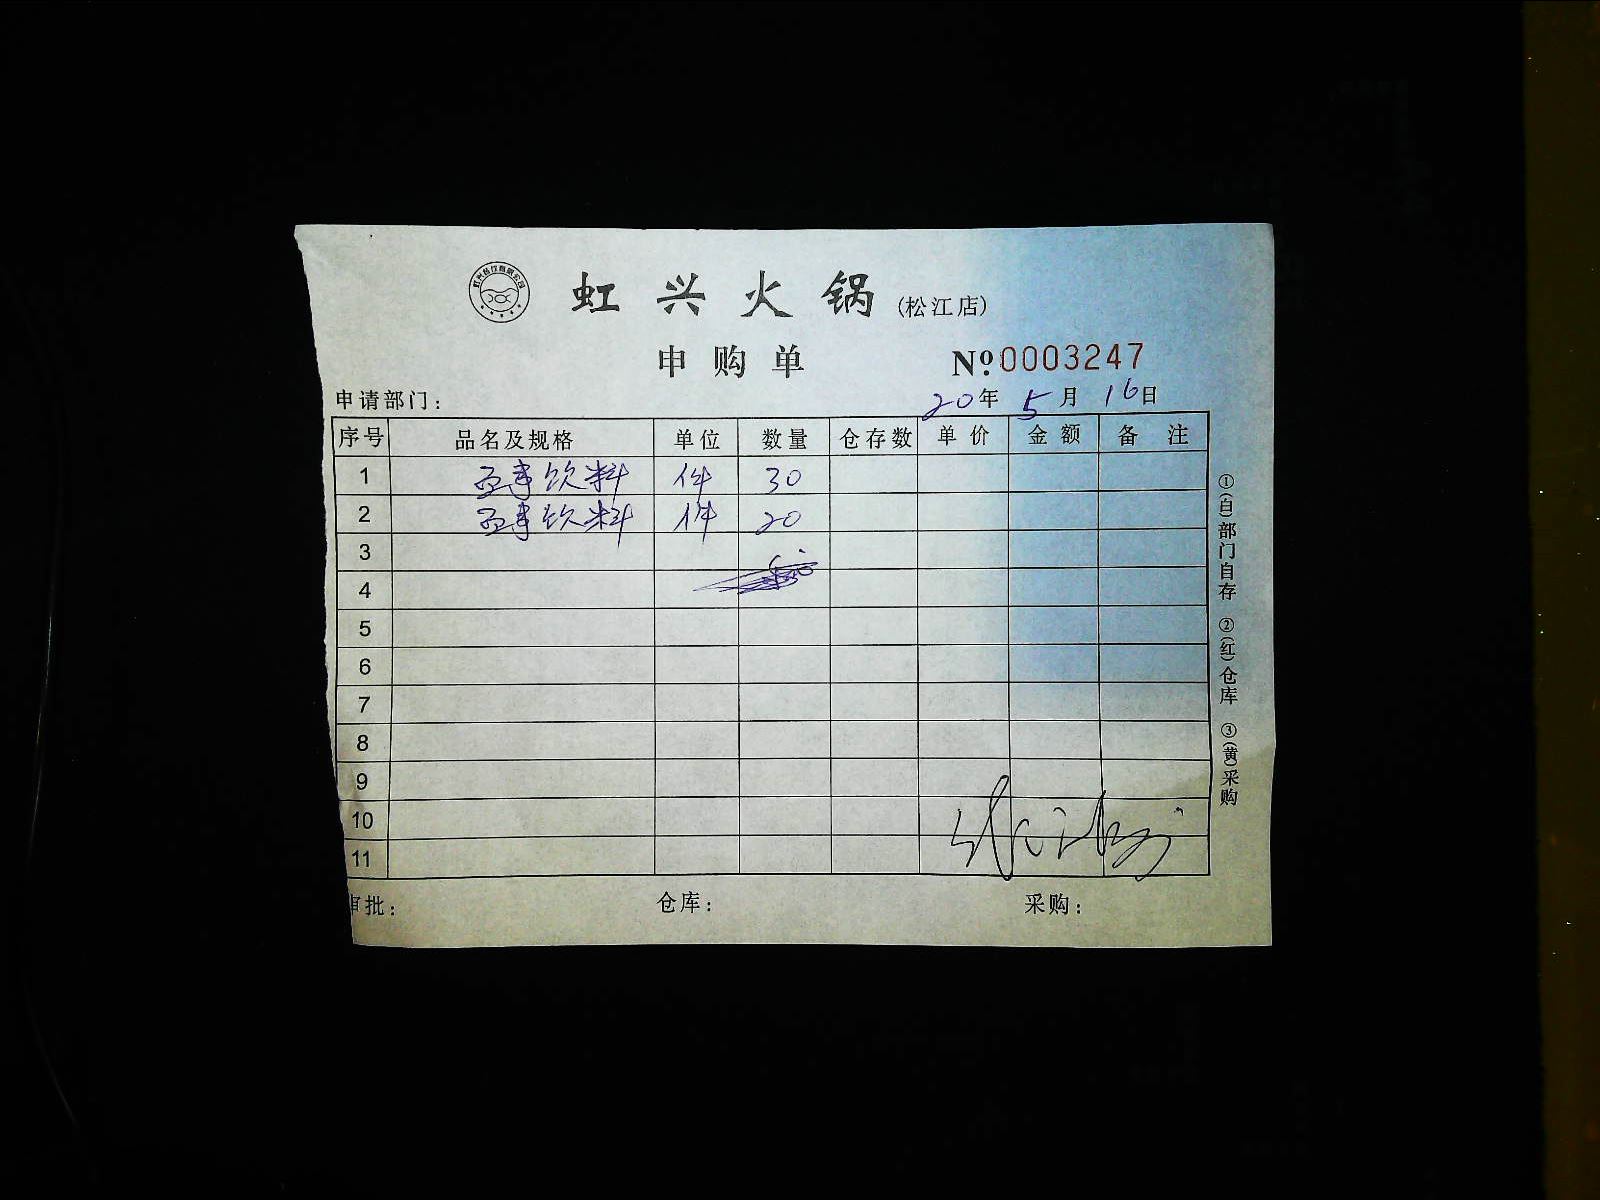 虹兴火锅(松江店)
申购单 № 0003247
申请部门: 20年 5月 16日
序号 品名及规格 单位 数量 仓存数 单价 金额 备注
1 饮料 件 30
2 饮料 件 20
3
4
5
6
7
8
9
10
11
审批: 仓库: 采购:
①(白)部门自存 ②(红)仓库 ③(黄)采购